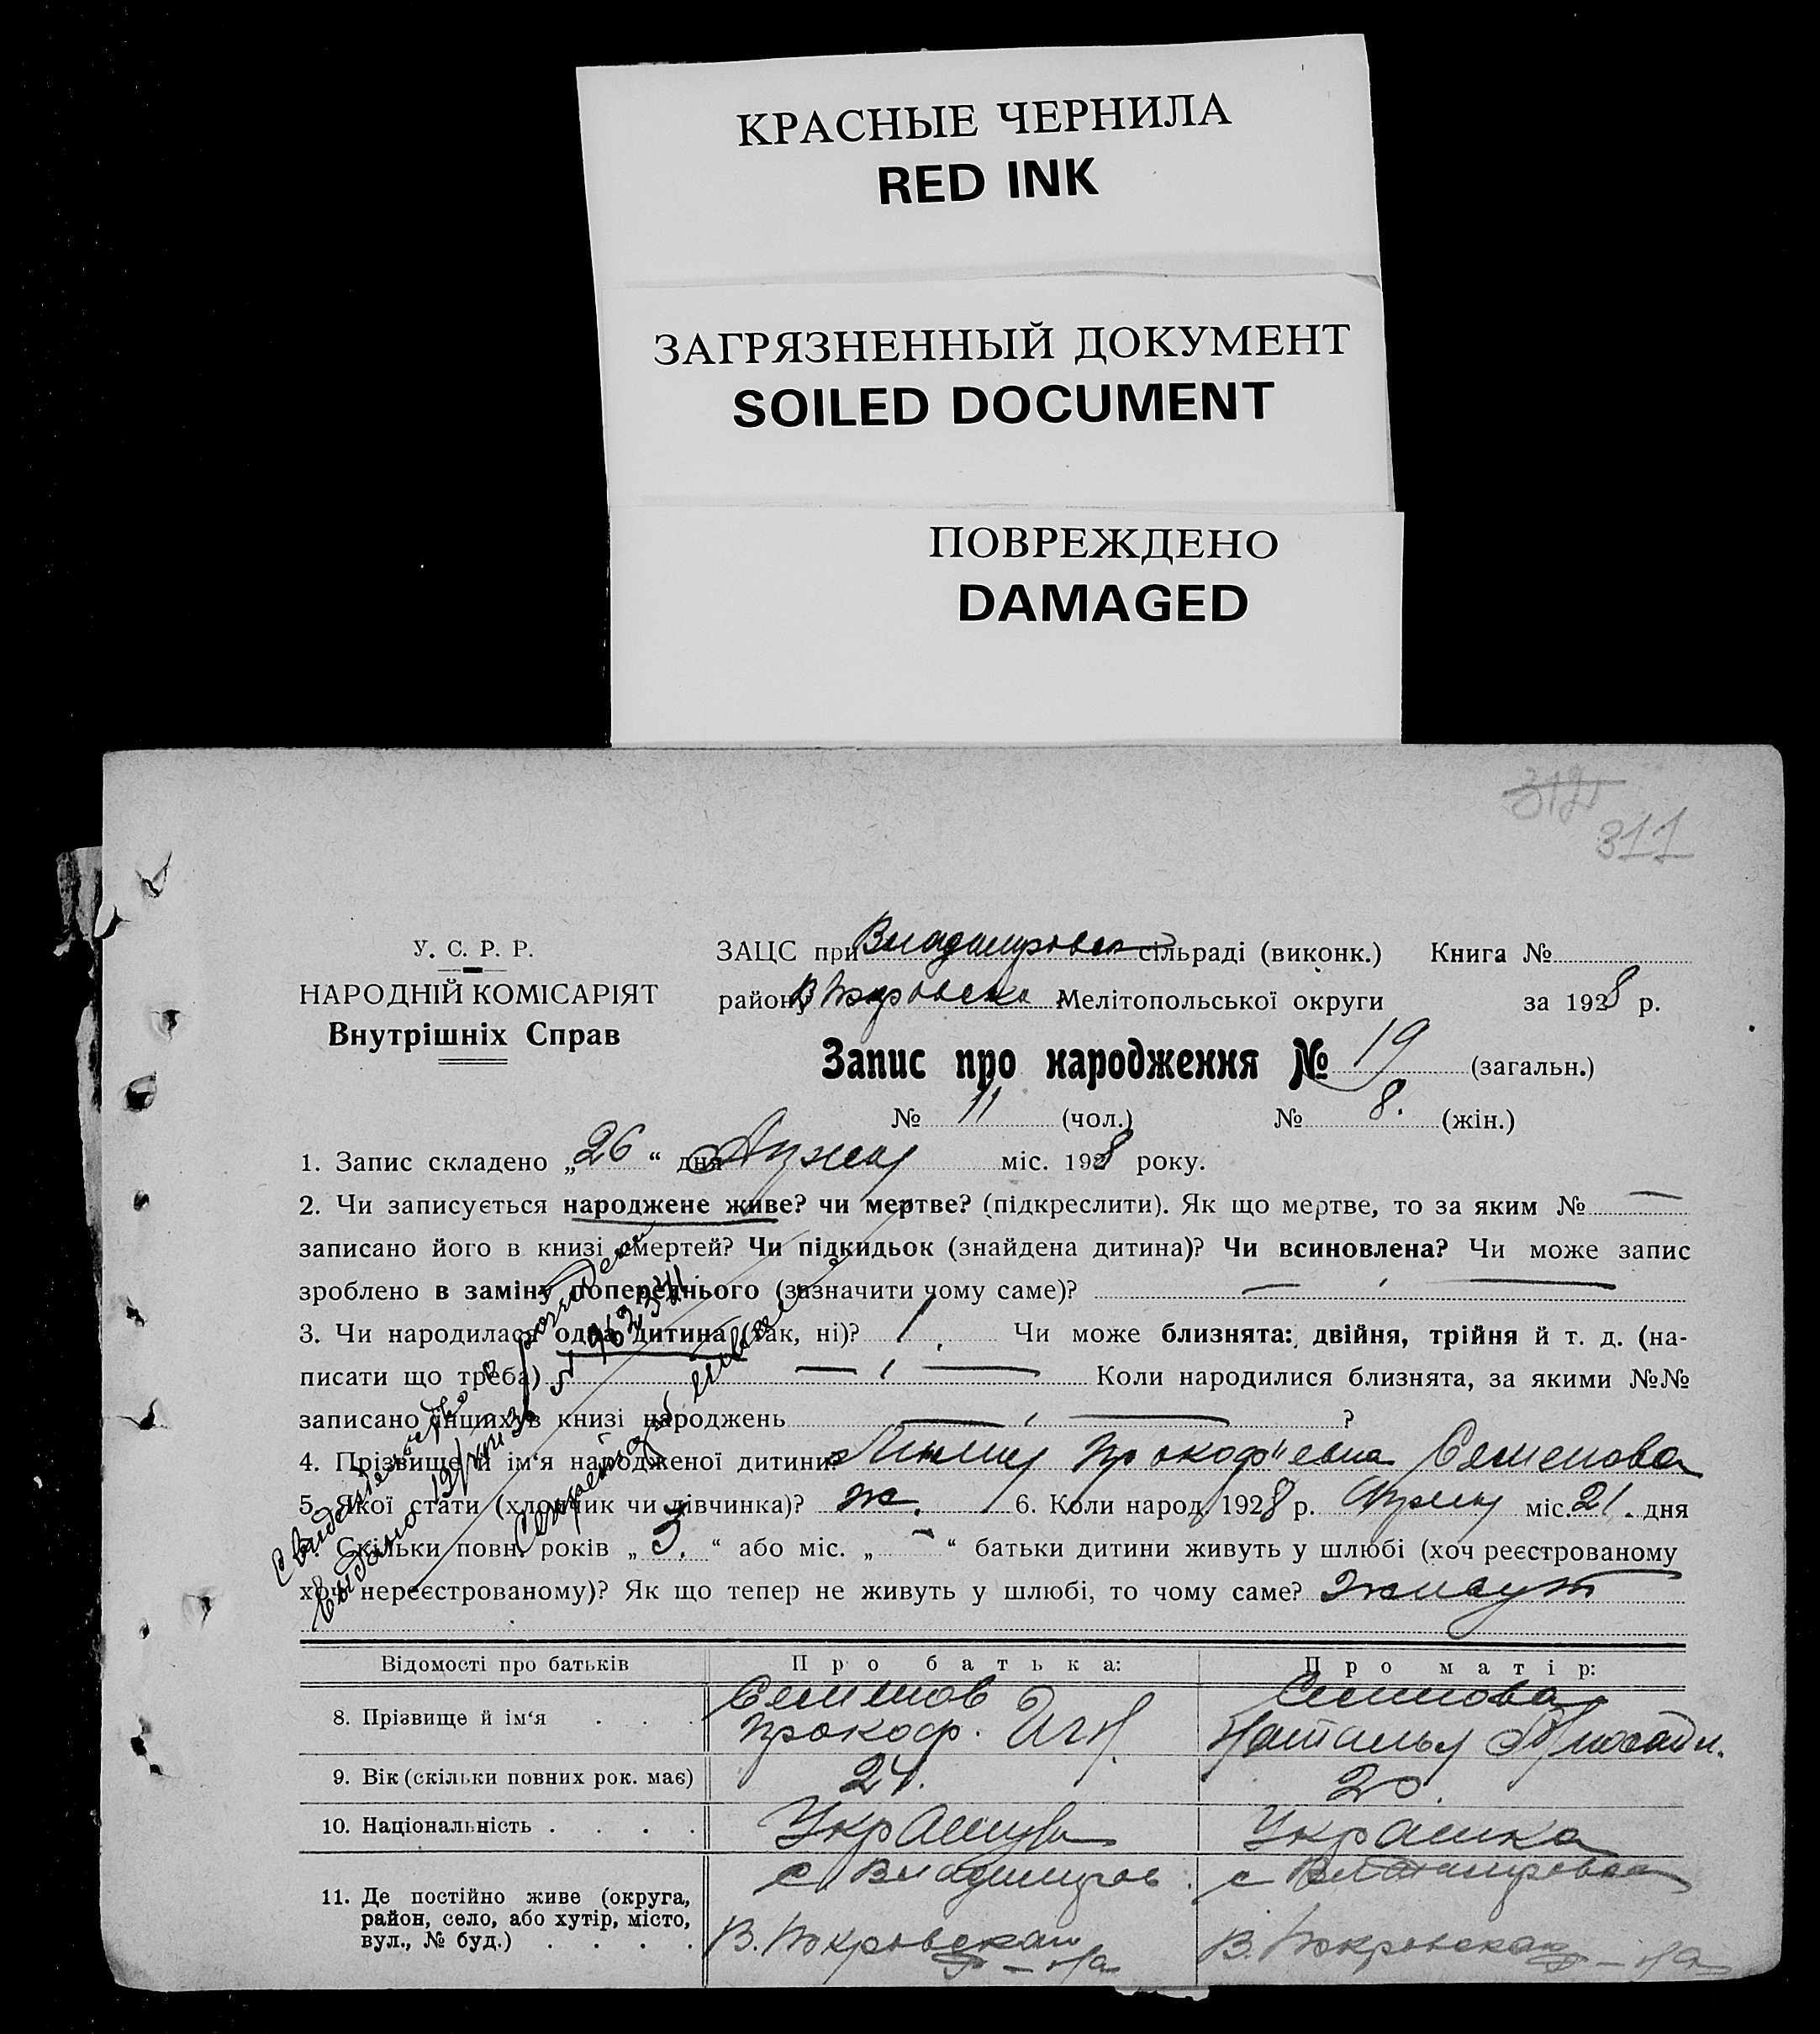 КРАСНЫЕ ЧЕРНИЛА
RED INK
ЗАГРЯЗНЕННЫЙ ДОКУМЕНТ
SOILED DOCUMENT
ПОВРЕЖДЕНО
DAMAGED
311
У. С. Р. Р.
НАРОДНІЙ КОМІСАРІЯТ
Внутрішніх Справ
ЗАЦС при Владимировск сільраді (виконк.) Книга №
району В Покровско Мелітопольської округи за 1928 р.
Запис про народження № 19 (загальн.)
№ 11 (чол.) № 8. (жін.)
1. Запис складено „26“ дня Апреля міс. 1928 року.
2. Чи записується народжене живе? чи мертве? (підкреслити). Як що мертве, то за яким № —
записано його в книзі смертей? Чи підкидьок (знайдена дитина)? Чи всиновлена? Чи може запис
зроблено в заміну попереднього (зазначити чому саме)? — —
3. Чи народилася одна дитина (так, ні)? 1. Чи може близнята: двійня, трійня й т. д. (на-
писати що треба) — — Коли народилися близнята, за якими №№
записано інших в книзі народжень — — ?
4. Прізвище й ім‘я народженої дитини? Прокоф"евна Семенова
5. Якої стати (хлопчик чи дівчинка)? ж. 6. Коли народ. 1928 р. Апреля міс. 21. дня
Скільки повн. років „3.“ або міс. „-“ батьки дитини живуть у шлюбі (хоч реєстрованому
хоч нереєстрованому)? Як що тепер не живуть у шлюбі, то чому саме? живут
Свидетельство о рождении
выдано № 963341
Відомості про батьків Про батька: Про матір:
8. Прізвище й ім‘я . . . Семенов Семенова
Прокоф. Игн. Наталья
9. Вік (скільки повних рок. має) 24. 20.
10. Національність . . . . Украинка
11. Де постійно живе (округа,
район, село, або хутір, місто,
вул., № буд.) . . . .
с Владимиров. с Владимировка
В. Покровскаго р-на В. Покровскаго р-на